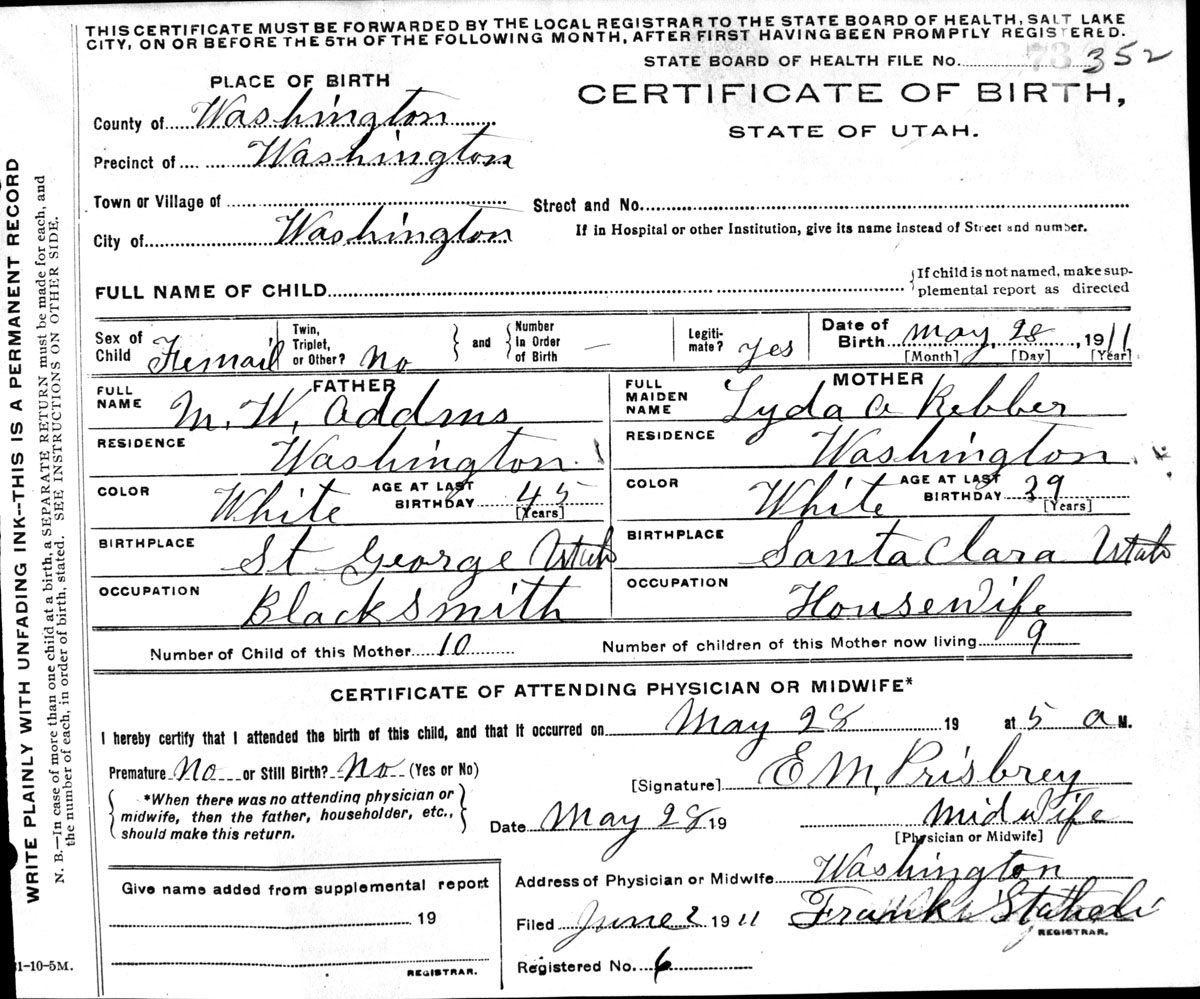 THIS CERTIFICATE MUST BE FORWARDED BY THE LOCAL REGISTRAR TO THE STATE BOARD OF HEALTH, SALT LAKE
CITY, ON OR BEFORE THE 5TH OF THE FOLLOWING MONTH, AFTER FIRST HAVING BEEN PROMPTLY REGISTERED.
STATE BOARD OF HEALTH FILE No. 352
PLACE OF BIRTH
CERTIFICATE OF BIRTH,
STATE OF UTAH.
County of Washington
Precinct of Washington
Town or Village of
Street and No.
City of Washington
If in Hospital or other Institution, give its name instead of Street and number.
FULL NAME OF CHILD
If child is not named, make sup-
plemental report as directed
Sex of Child Femail Twin, Triplet, or Other? No and Number in Order of Birth — Legiti-mate? yes Date of Birth May, 28, 1911
[Month] [Day] [Year]
FATHER MOTHER
FULL NAME M. W. Addms FULL MAIDEN NAME Lyda A Rebber
RESIDENCE Washington RESIDENCE Washington
COLOR White AGE AT LAST BIRTHDAY 45 [Years] COLOR White AGE AT LAST BIRTHDAY 39 [Years]
BIRTHPLACE St George Utah BIRTHPLACE Santa Clara Utah
OCCUPATION BlackSmith OCCUPATION HouseWife
Number of Child of this Mother 10 Number of children of this Mother now living 9
CERTIFICATE OF ATTENDING PHYSICIAN OR MIDWIFE*
I hereby certify that I attended the birth of this child, and that it occurred on May 28 19 at 5 a M.
Premature No or Still Birth? No (Yes or No)
[Signature] E M, Prisbrey
*When there was no attending physician or
midwife, then the father, householder, etc.,
should make this return.
Date May 28 19 midwife
[Physician or Midwife]
Address of Physician or Midwife Washington
Give name added from supplemental report
19
REGISTRAR.
Filed June 2 1911 Frank
REGISTRAR.
Registered No. 6
WRITE PLAINLY WITH UNFADING INK--THIS IS A PERMANENT RECORD
N. B.—In case of more than one child at a birth, a SEPARATE RETURN must be made for each, and
the number of each, in order of birth, stated. SEE INSTRUCTIONS ON OTHER SIDE.
1-10-5M.